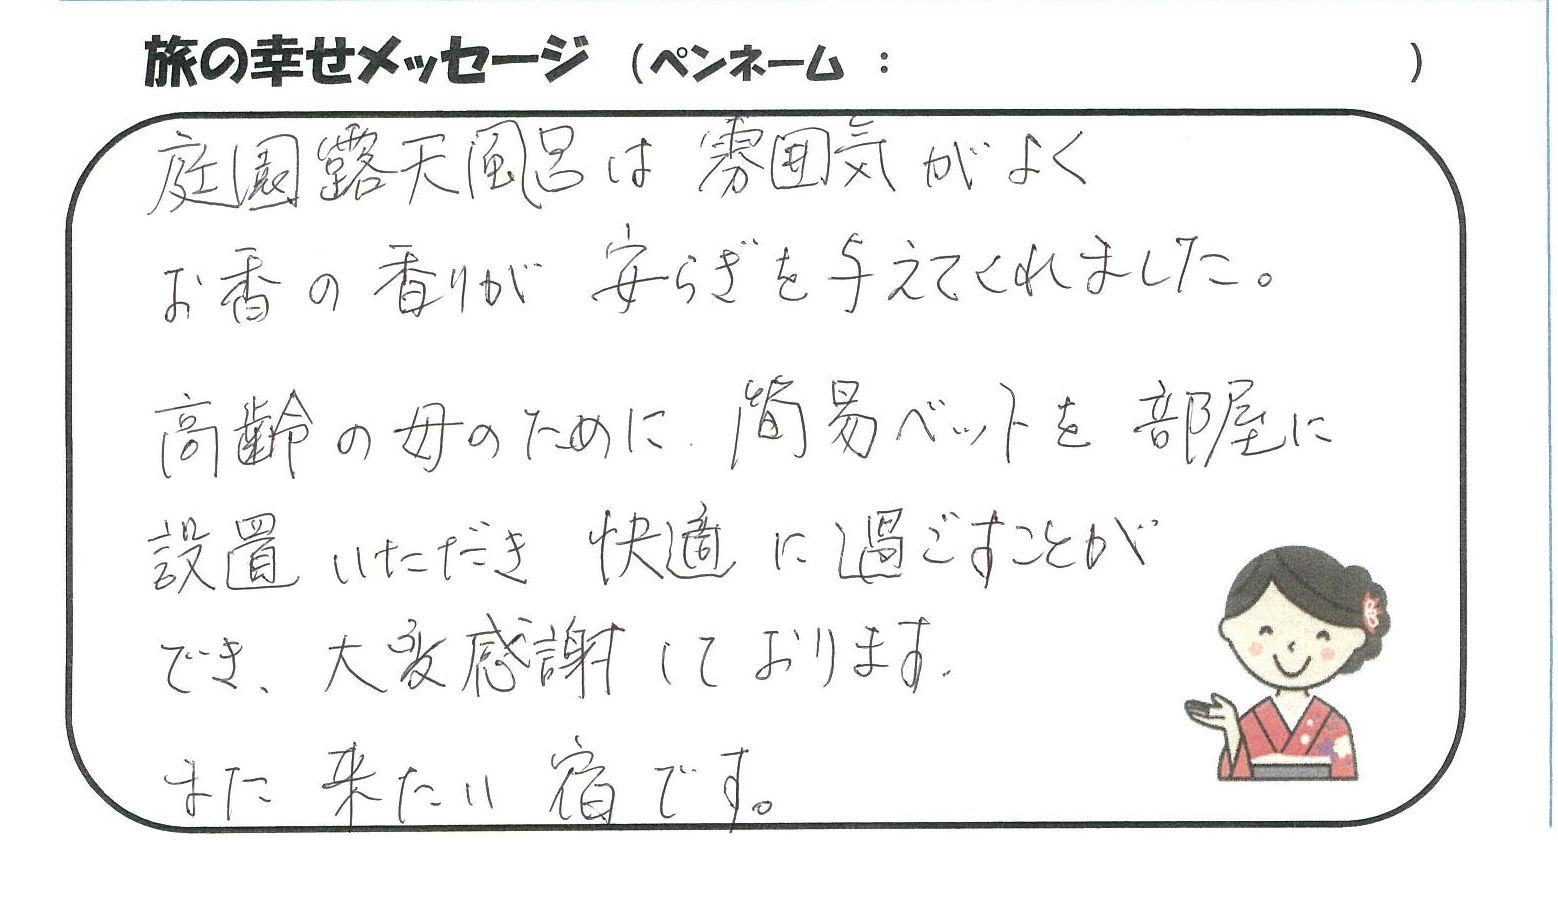 旅の幸せメッセージ（ペンネーム：　　　　　）
庭園露天風呂は雰囲気がよく
お香の香りが安らぎを与えてくれました。
高齢の母のために簡易ベットを部屋に
設置いただき快適に過ごすことが
でき、大変感謝しております。
また来たい宿です。